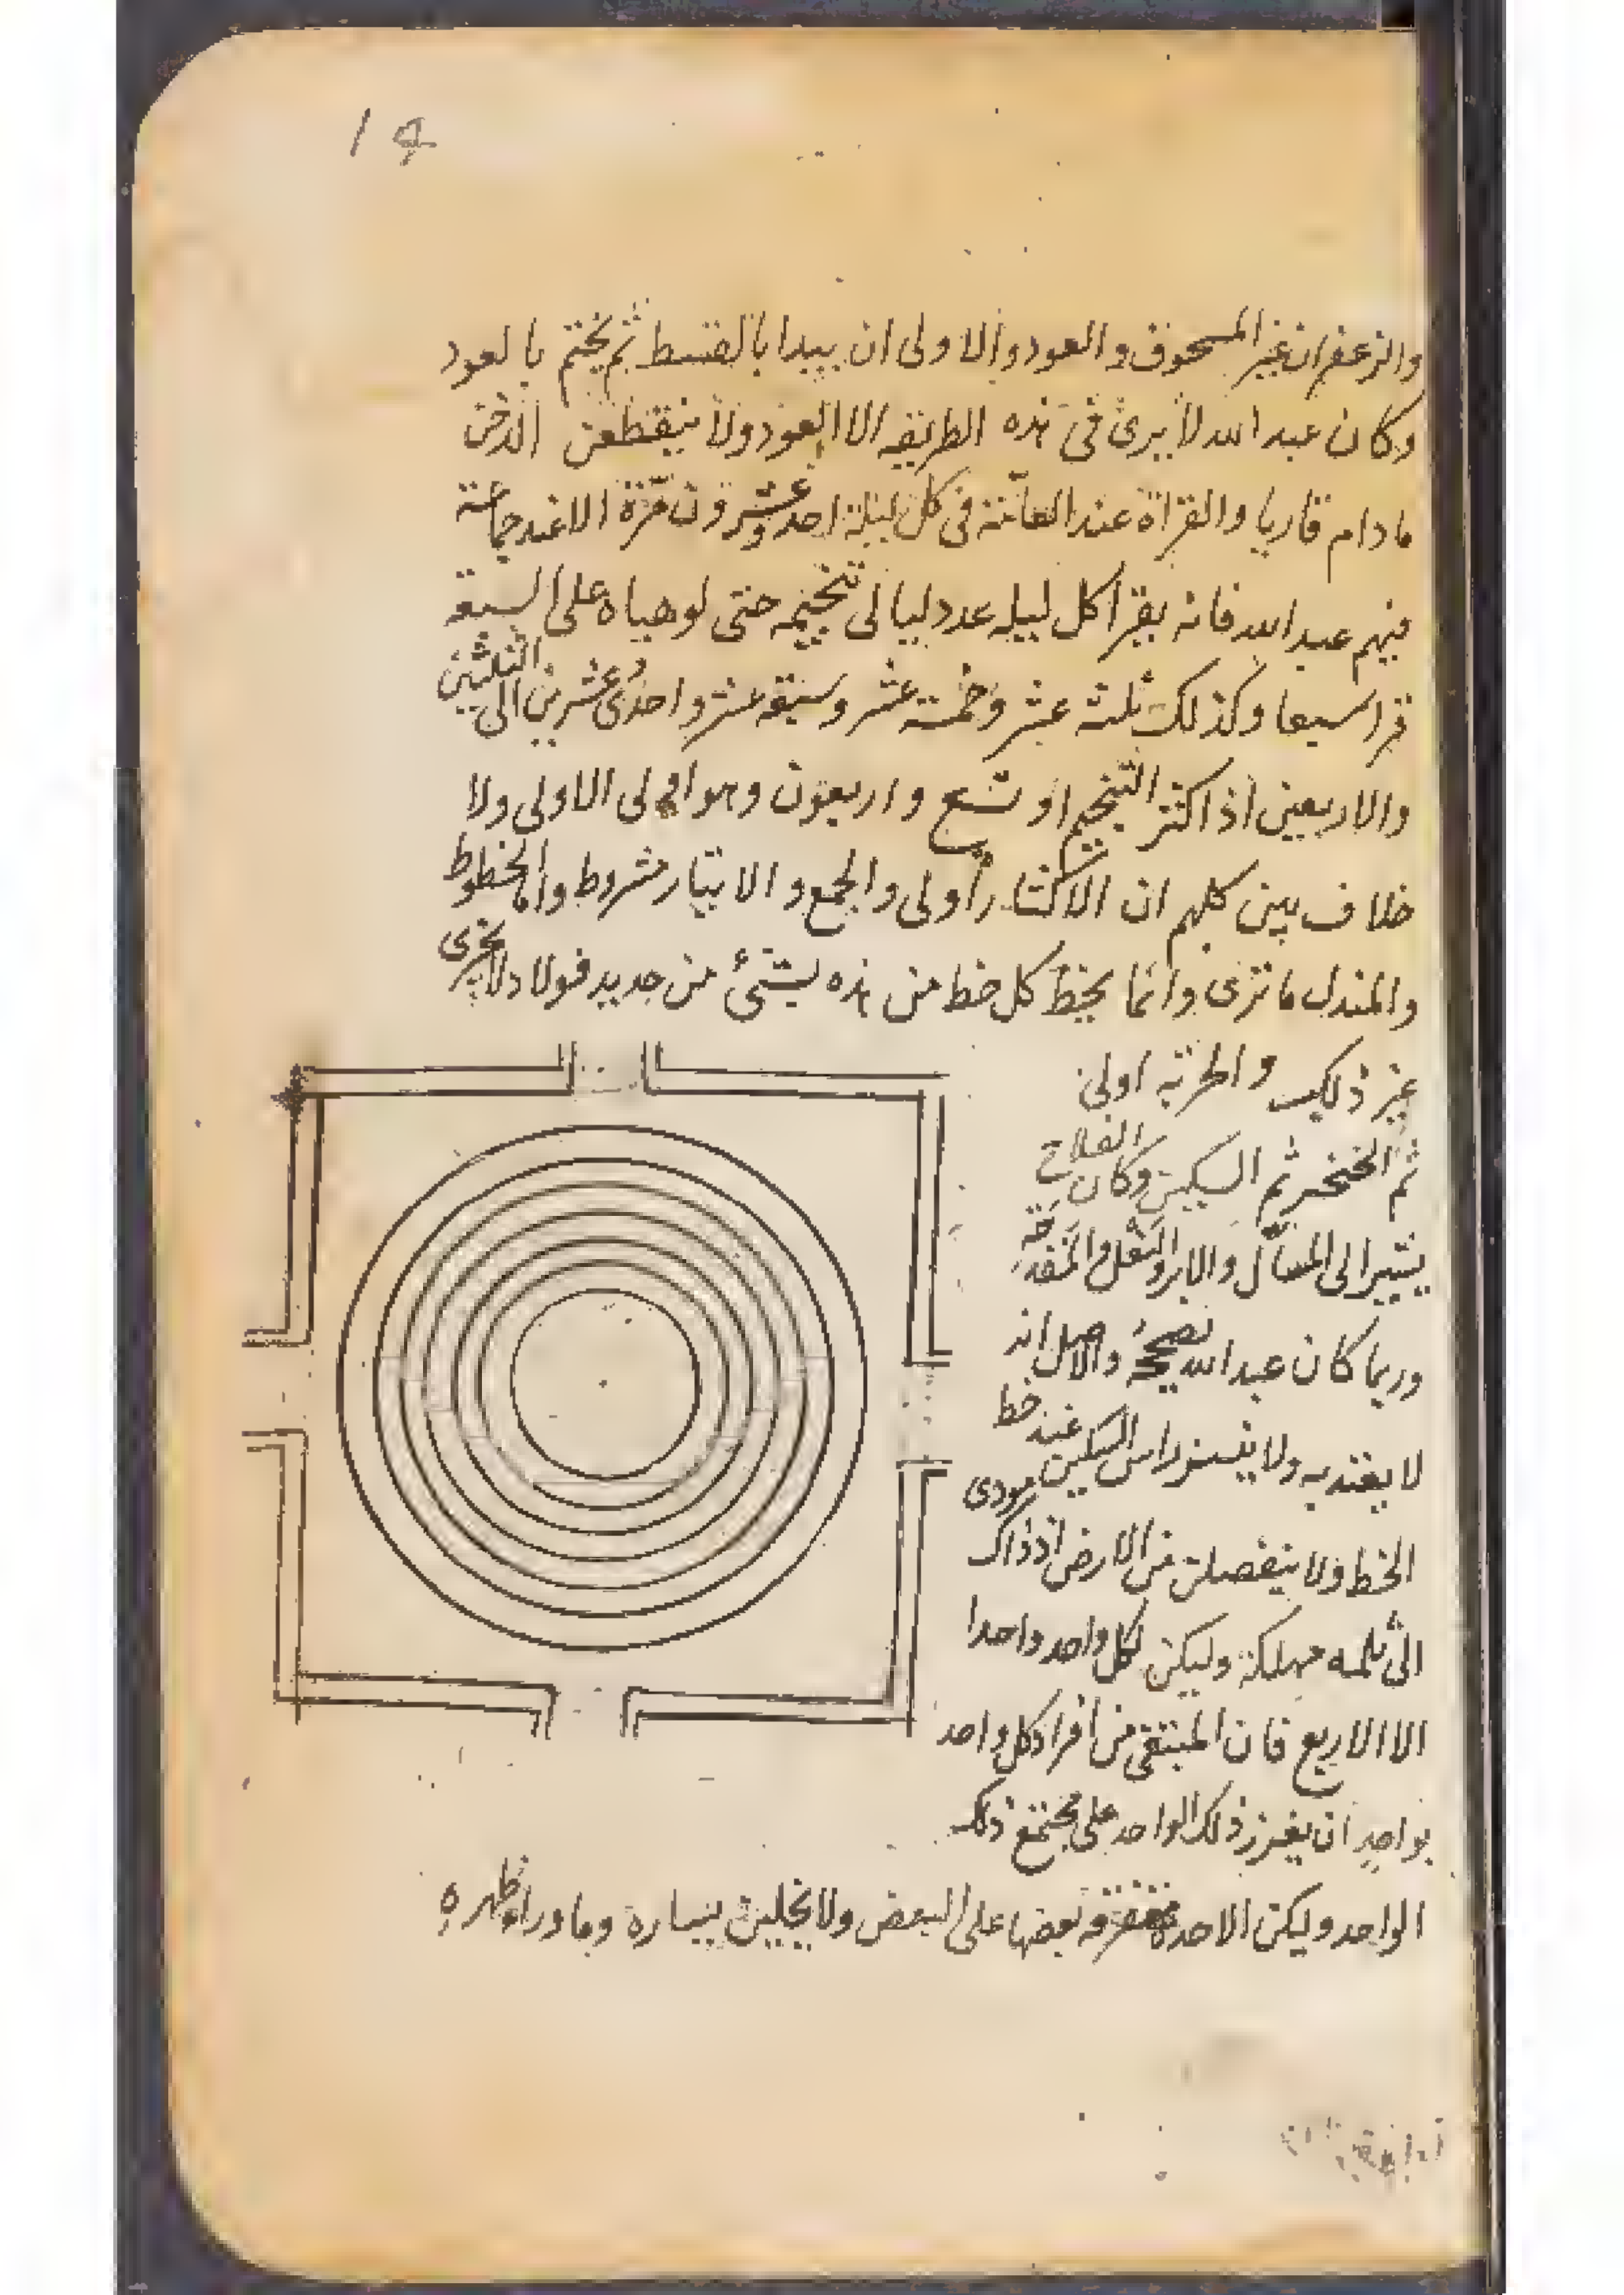 والزعفران غير المسحوق والعود والاولى ان يبدا بالقسط ثم يختم بالعود
وكان عبد الله لا يرى فى هذه الطريقه الا العود ولا ينقطعن الدخن
ما دام قاريا والقراة عند العامة فى كل ليلة احد وعشرون مرة الا عند جماعة
فيهم عبد الله فانه يقرا كل ليله عدد ليالى تنجيمه حتى لو هياه على السبعة
قرا سبعا وكذلك ثلثه عشر وخمسة عشر وسبعه عشر واحدى عشرين الى الثلثين
والاربعين اذا اكثر التنجيم او تسع واربعون وهو اولى الاولى ولا
خلاف بين كلهم ان الاكثار اولى والجمع والايتار مشروط واما الخطوط
والمندل ما ترى وانما يخط كل خط من هذه بشئ من حديد فولاد لا يجزى
غير ذلك والحربه اولى
ثم الخنجر ثم السكين وكان الفلاح
يشير الى المسال والابر والنعل والمقدحة
وربما كان عبد الله يصححه والاصل انه
لا يعتد به ولا راس السكين عند خط
الخط ولا ينفصلن من الارض اذ ذاك يودى
الى ثلمه مهلكة وليكن لكل واحد واحدا
الا الاربع فان من افراد كل واحد
بواحد ان يغرز ذلك الواحد على مجتمع ذلك
الواحد وليكن الاحد متفرقه بعضها على البعض ولا يخلين يساره وما وراء ظهره